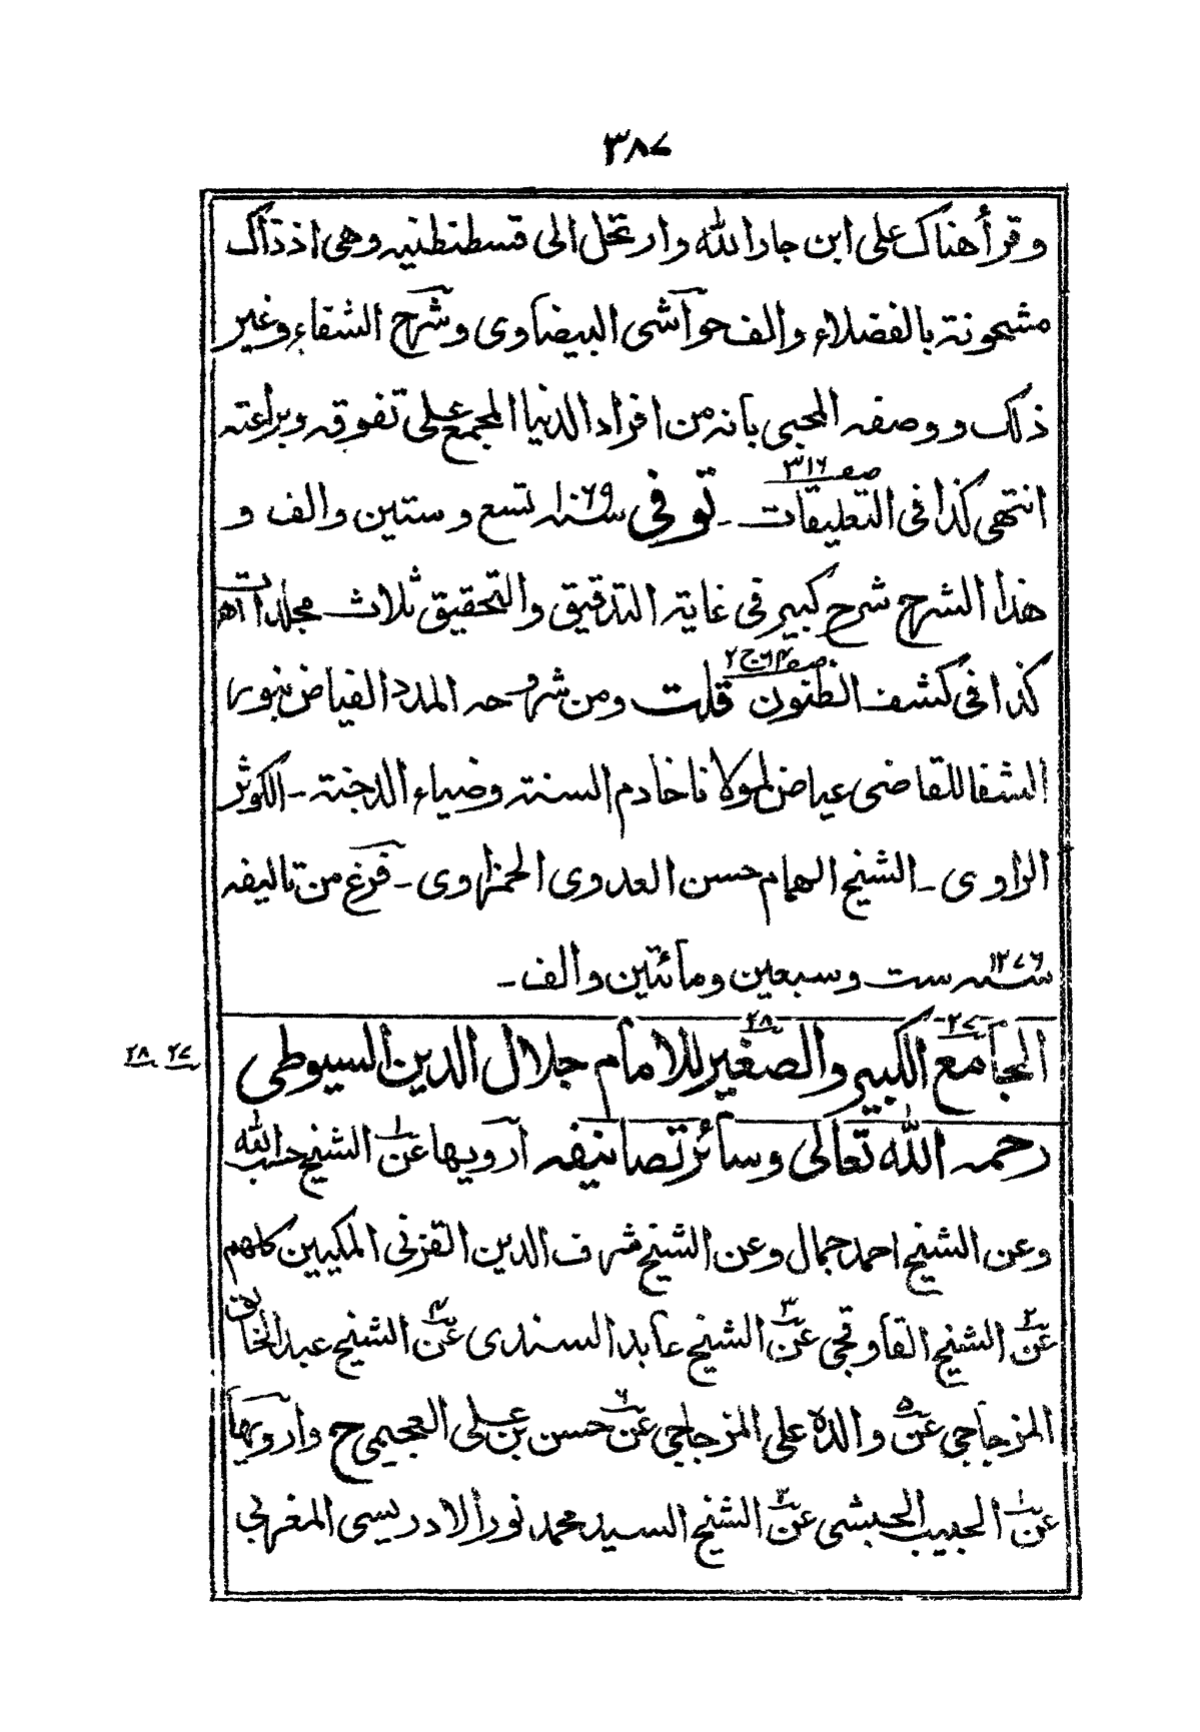 ٣٨٧
وقرأ هناك على ابن جار الله وارتحل الى قسطنطنيه وهى اذ ذاك
مشحونة بالفضلاء والف حواشى البيضاوى وشرح الشفاء وغير
ذلك ووصفه المحبى بانه من افراد الدنيا المجمع على تفوقه وبراعته
صفـ ٣١٦
انتهى كذا فى التعليقات ـ توفى سنة ١٠٦٩ تسع وستين والف و
هذا الشرح شرح كبير فى غاية التدقيق والتحقيق ثلاث مجلدات اه
كذا فى كشف الظنون قلت ومن شروحه المدد الفياض بنور
الشفا للقاضى عياض لمولانا خادم السنة وضياء الدجنة ـ الكوثر
الراوى ـ الشيخ الهمام حسن العدوى الحمزاوى ـ فرغ من تاليفه
سنة ١٢٧٦ ست وسبعين ومائتين والف ـ
٢٧ ٢٨
الجامع الكبير والصغير للامام جلال الدين السيوطى
٢٧ ٢٨
رحمه الله تعالى وسائر تصانيفه ارويها عن١ الشيخ حسب الله
وعن الشيخ احمد جمال وعن الشيخ شرف الدين القزنى المكيين كلهم
عن٢ الشيخ القاوقجى عن٣ الشيخ عابد السندى عن٤ الشيخ عبد الخالق
المزجاجى عن٥ والده على المزجاجى عن٦ حسن بن على العجيمى ح وارويها
عن١ الحبيب الحبشى عن٢ الشيخ السيد محمد نور الادريسى المغربى